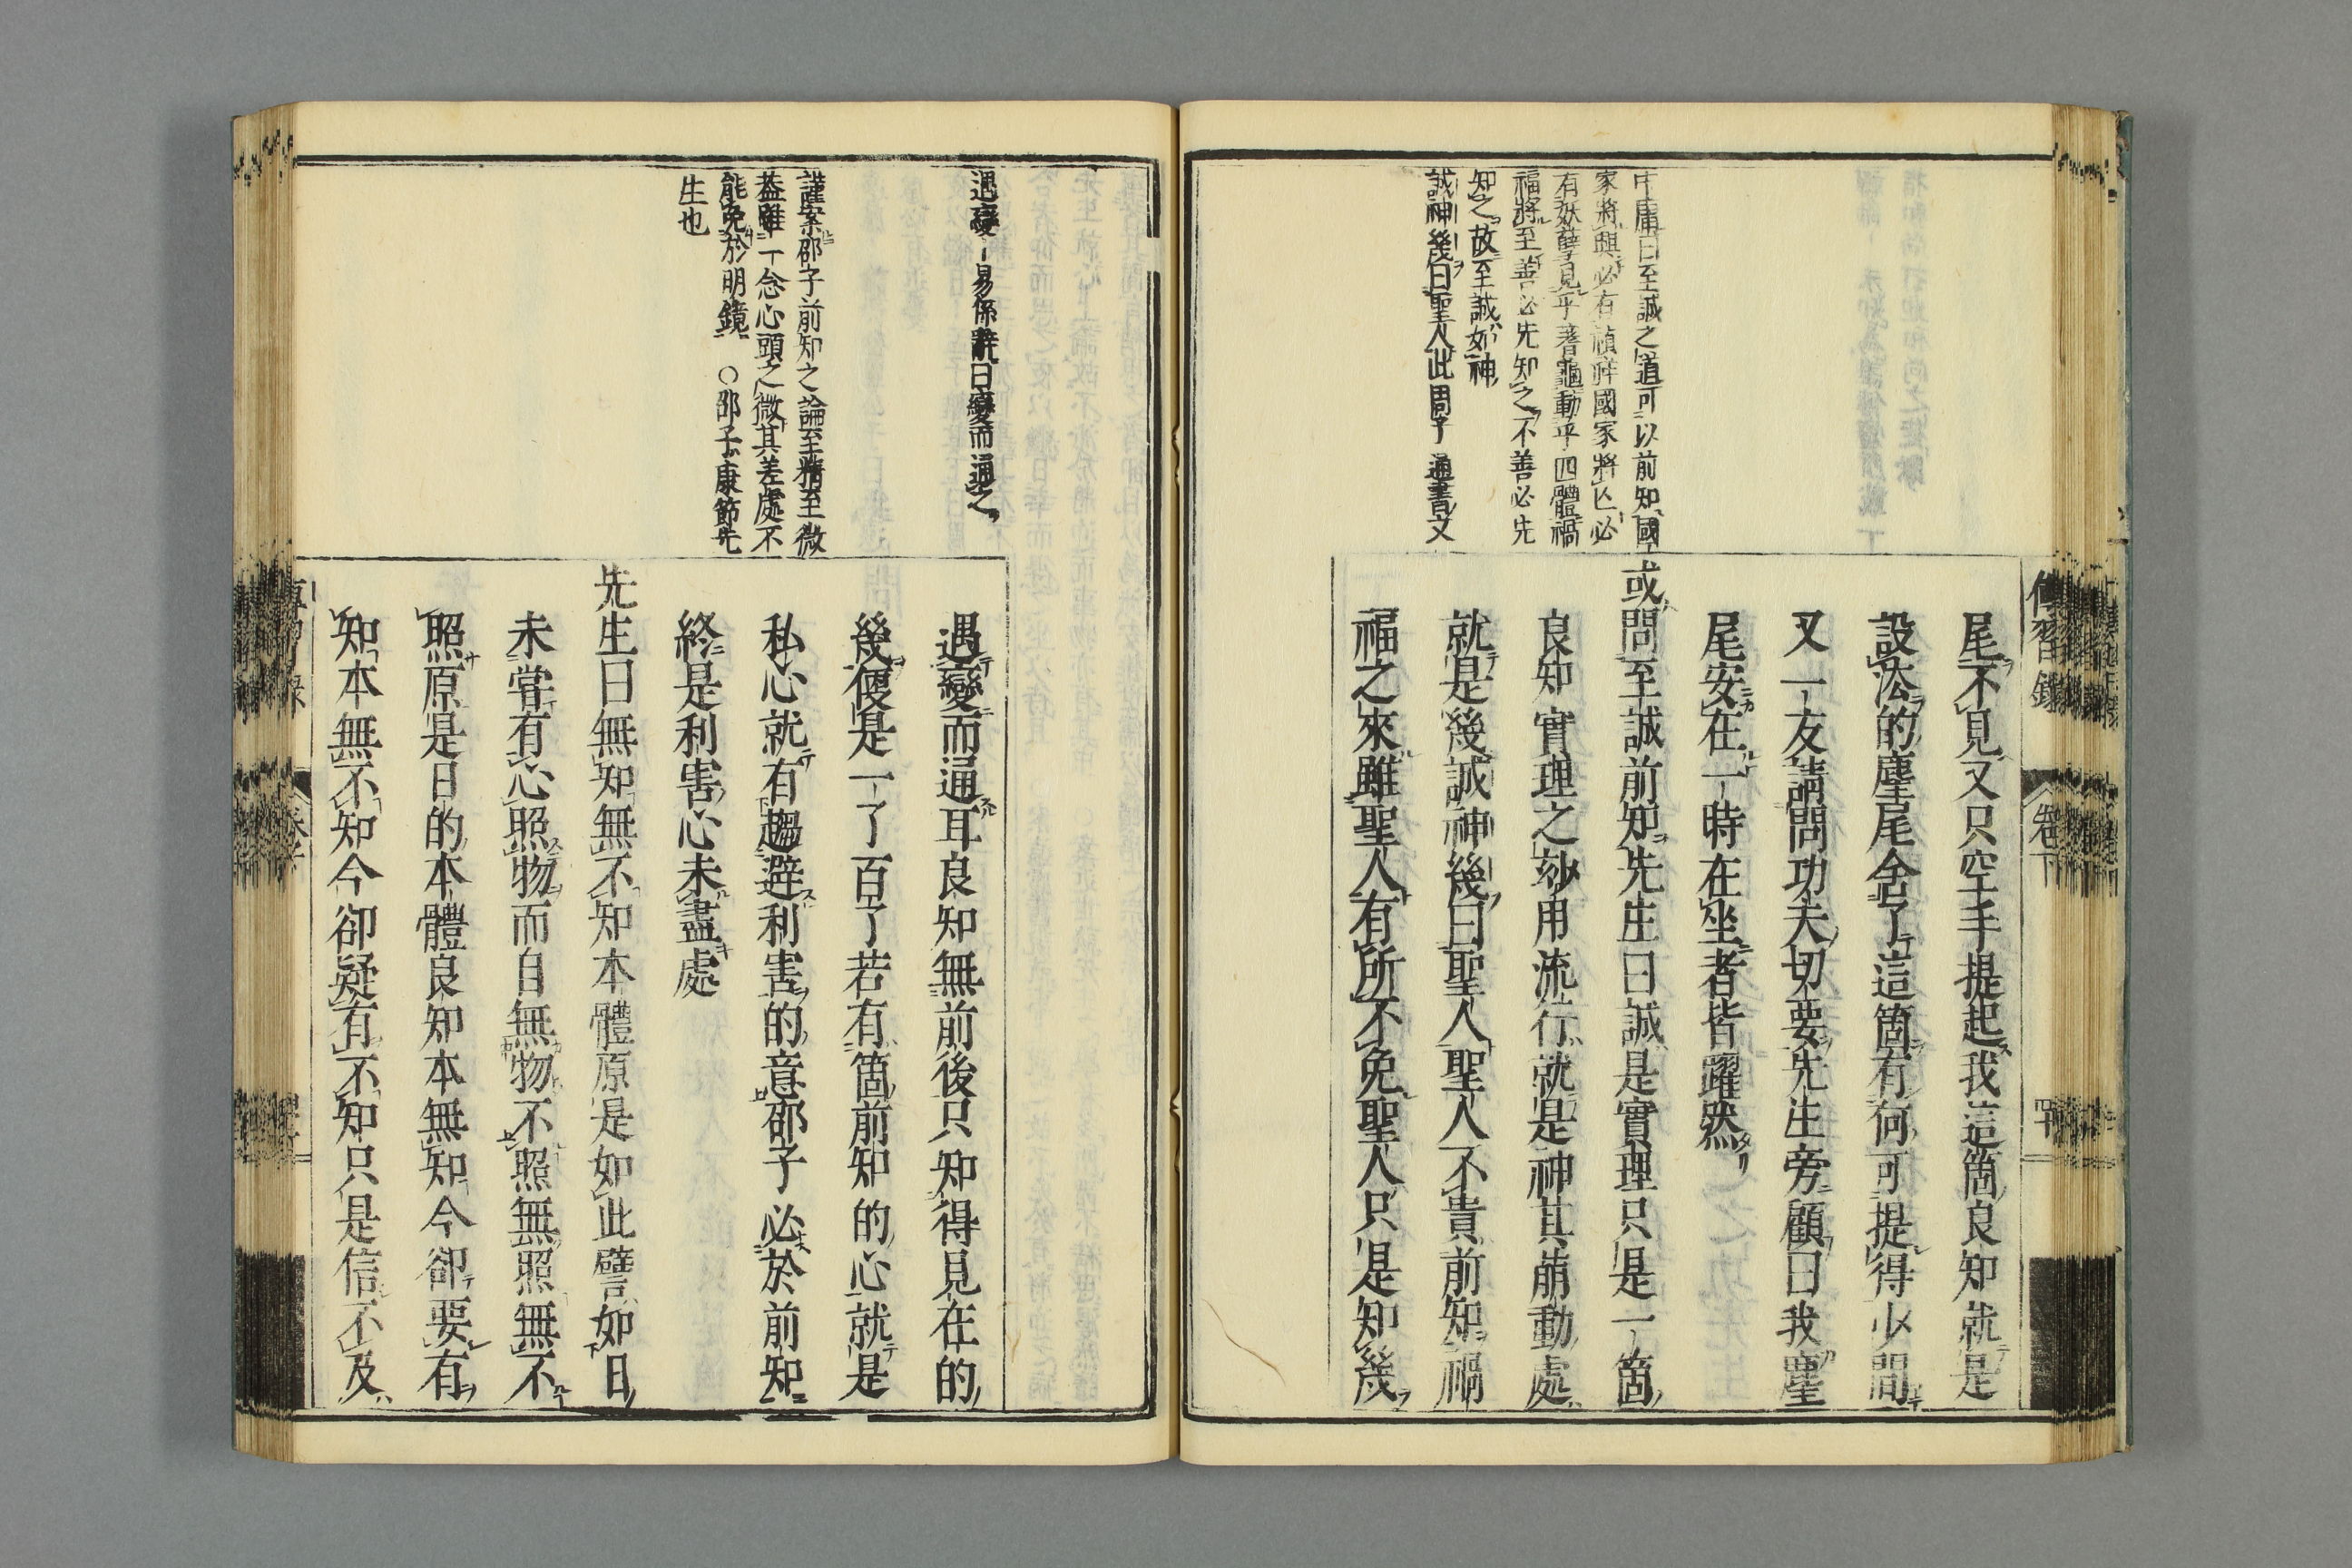 傳習錄
卷下
中庸曰至誠之道可以前知國
家將興必有禎祥國家將亡必
有妖孽見乎蓍龜動乎四體禍
福將至善必先知之不善必先
知之故至誠如神
誠神幾曰聖人此周子通書文
尾不見又只空手提起我這箇良知就是
設法的塵尾舍了這箇有何可提得少間
又一友請問功夫切要先生旁顧曰我塵
尾安在一時在坐者皆躍然
或問至誠前知先生曰誠是實理只是一箇
良知實理之玅用流行就是神其萠動處
就是幾誠神幾曰聖人聖人不貴前知禍
福之來雖聖人有所不免聖人只是知幾
遇變易係辭曰變而通之
謹案邵子前知之論至精至微
葢雖一念心頭之微其差處不
能免於明鏡 ○邵子康節先
生也
遇變而通耳良知無前後只知得見在的
幾便是一了百了若有箇前知的心就是
私心就有趨避利害的意邵子必於前知
終是利害心未盡處
先生曰無知無不知本體原是如此譬如日
未嘗有心照物而自無物不照無照無不
照原是日的本體良知本無知今卻要有
知本無不知今卻疑有不知只是信不及